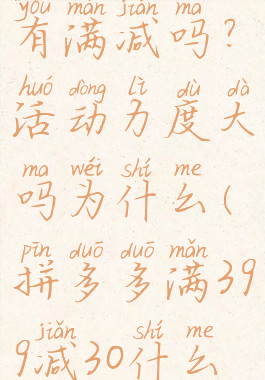 yǒu mǎn jiǎn ma
有满减吗？
huó dòng lì dù dà
活动力度大
ma wéi shí me
吗为什么(
pīn duō duō mǎn
拼多多满39
jiǎn shí me
9减30什么